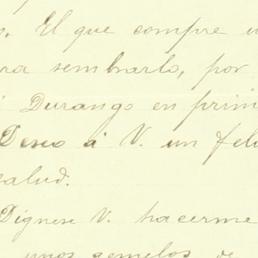 o. El que compre u
ra sembrarlo, por
i Durango en prim
Deseo á V. un feli
salud.
Dignese V. hacerme
unos gemelos de